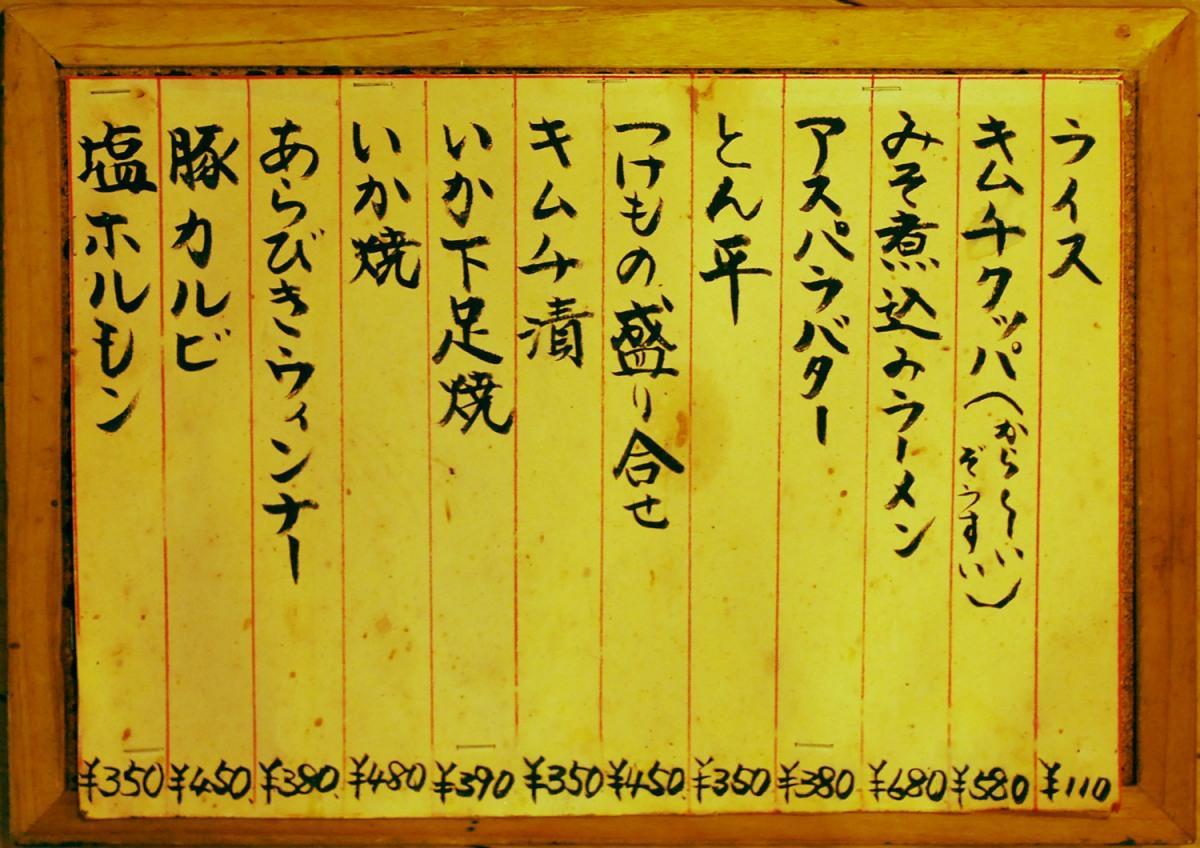 ライス ¥110
キムチクッパ(から〜い ぞうすい) ¥580
みそ煮込みラーメン ¥680
アスパラバター ¥380
とん平 ¥350
つけもの盛り合せ ¥450
キムチ漬 ¥350
いか下足焼 ¥390
いか焼 ¥480
あらびきウィンナー ¥380
豚カルビ ¥450
塩ホルモン ¥350